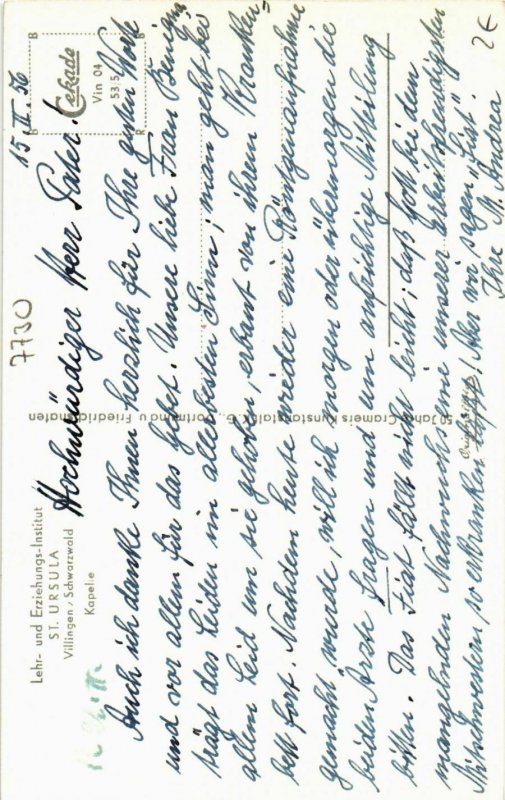 Lehr- und Erziehungs-Institut
ST. URSULA
Villingen / Schwarzwald
Kapelle
7730
15. II. 56
B B
Cekade
Vin 04
53:5
R R
2€
Hochwürdiger Herr Pater!
Auch ich danke Ihnen herzlich für Ihre guten Worte
und vor allem für das Gebet. Unsere liebe Frau Benigna
trägt das Leiden im allerbesten Sinn; man geht bei
allem Leid um sie gehoben, erbaut von ihrem Kranken-
bett fort. Nachdem heute wieder eine Röntgenaufnahme
gemacht wurde, will ich morgen oder übermorgen die
beiden Ärzte fragen und um aufrichtige Mitteilung
bitten. Das Fiat fällt nicht leicht; daß Gott bei dem
mangelnden Nachwuchs eine unserer arbeitsfreudigsten
Mitschwestern, so erkranken Aber wir sagen „Fiat".
Ihre M. Andrea
50 Jahre Cramers Kunstanstalt K.G., Dortmund u. Friedrichshafen